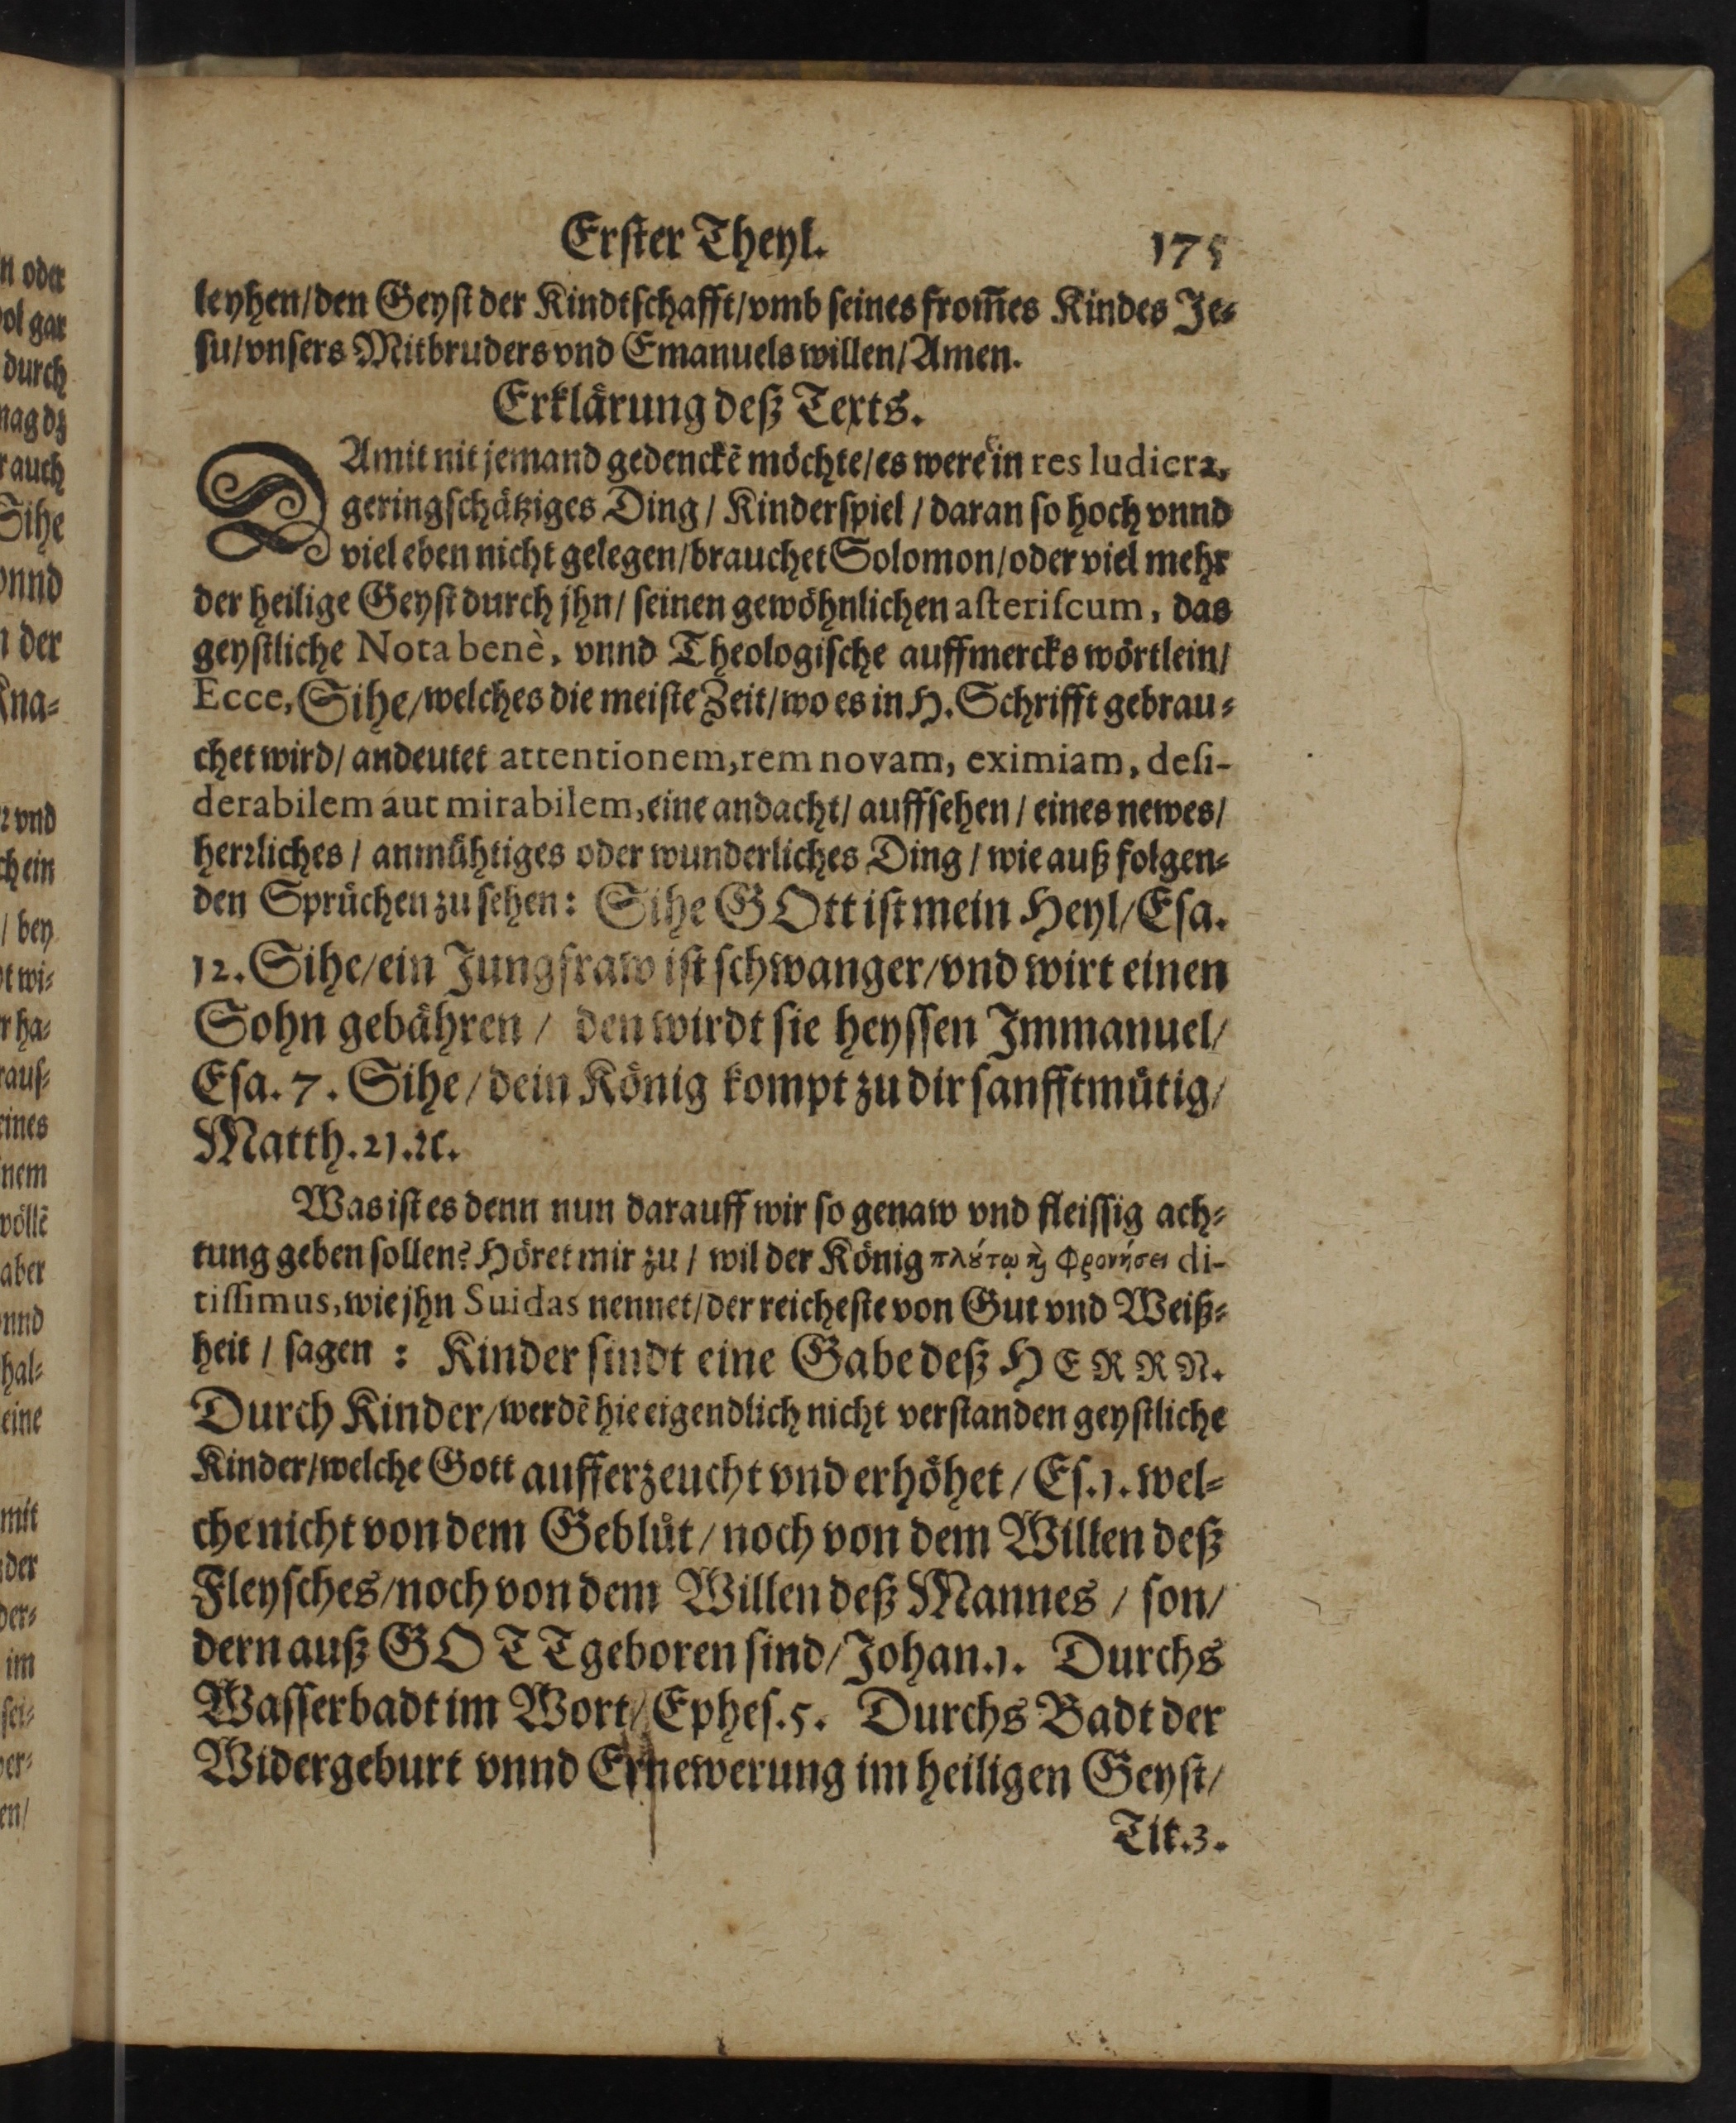 Erster Theyl. 175
leyhen/den Geyst der Kindtschafft/vmb seines from̃es Kindes Je⸗
su/vnsers Mitbruders vnd Emanuels willen/Amen.
Erklärung deß Texts.
DAmit nit jemand gedenckẽ möchte/es were ein res ludicra,
geringschätziges Ding / Kinderspiel / daran so hoch vnnd
viel eben nicht gelegen/brauchet Solomon/oder viel mehr
der heilige Geyst durch jhn/ seinen gewöhnlichen asteriscum, das
geystliche Nota benè, vnnd Theologische auffmercks wörtlein/
Ecce, Sihe/welches die meiste Zeit/wo es in H. Schrifft gebrau⸗
chet wird/ andeutet attentionem, rem novam, eximiam, desi-
derabilem aut mirabilem, eine andacht/ auffsehen / eines newes/
herzliches / anmühtiges oder wunderliches Ding / wie auß folgen⸗
den Sprüchen zu sehen: Sihe GOtt ist mein Heyl/Esa.
12. Sihe/ein Jungfraw ist schwanger/vnd wirt einen
Sohn gebähren / den wirdt sie heyssen Immanuel/
Esa. 7. Sihe/dein König kompt zu dir sanfftmütig/
Matth. 21. ꝛc.
Was ist es denn nun darauff wir so genaw vnd fleissig ach⸗
tung geben sollen? Höret mir zu / wil der König πλούτῳ καὶ φρονήσει di-
tissimus, wie jhn Suidas nennet/der reicheste von Gut vnd Weiß⸗
heit / sagen : Kinder sindt eine Gabe deß HERRN.
Durch Kinder/werdẽ hie eigendlich nicht verstanden geystliche
Kinder/welche Gott aufferzeucht vnd erhöhet / Es. 1. wel⸗
che nicht von dem Geblüt/noch von dem Willen deß
Fleysches/noch von dem Willen deß Mannes / son/
dern auß GOTT geboren sind/Johan. 1. Durchs
Wasserbadt im Wort/ Ephes. 5. Durchs Badt der
Widergeburt vnnd Ernewerung im heiligen Geyst/
Tit. 3.